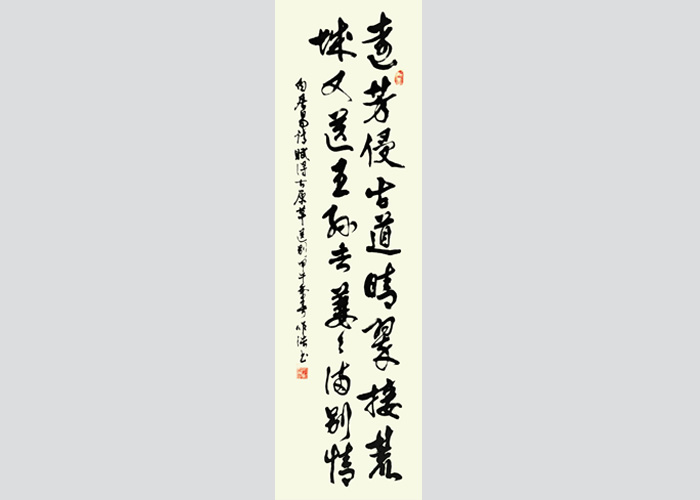 遠芳侵古道晴翠接荒
城又送王孫去萋々滿别情
白居易詩賦得古原草送别甲午